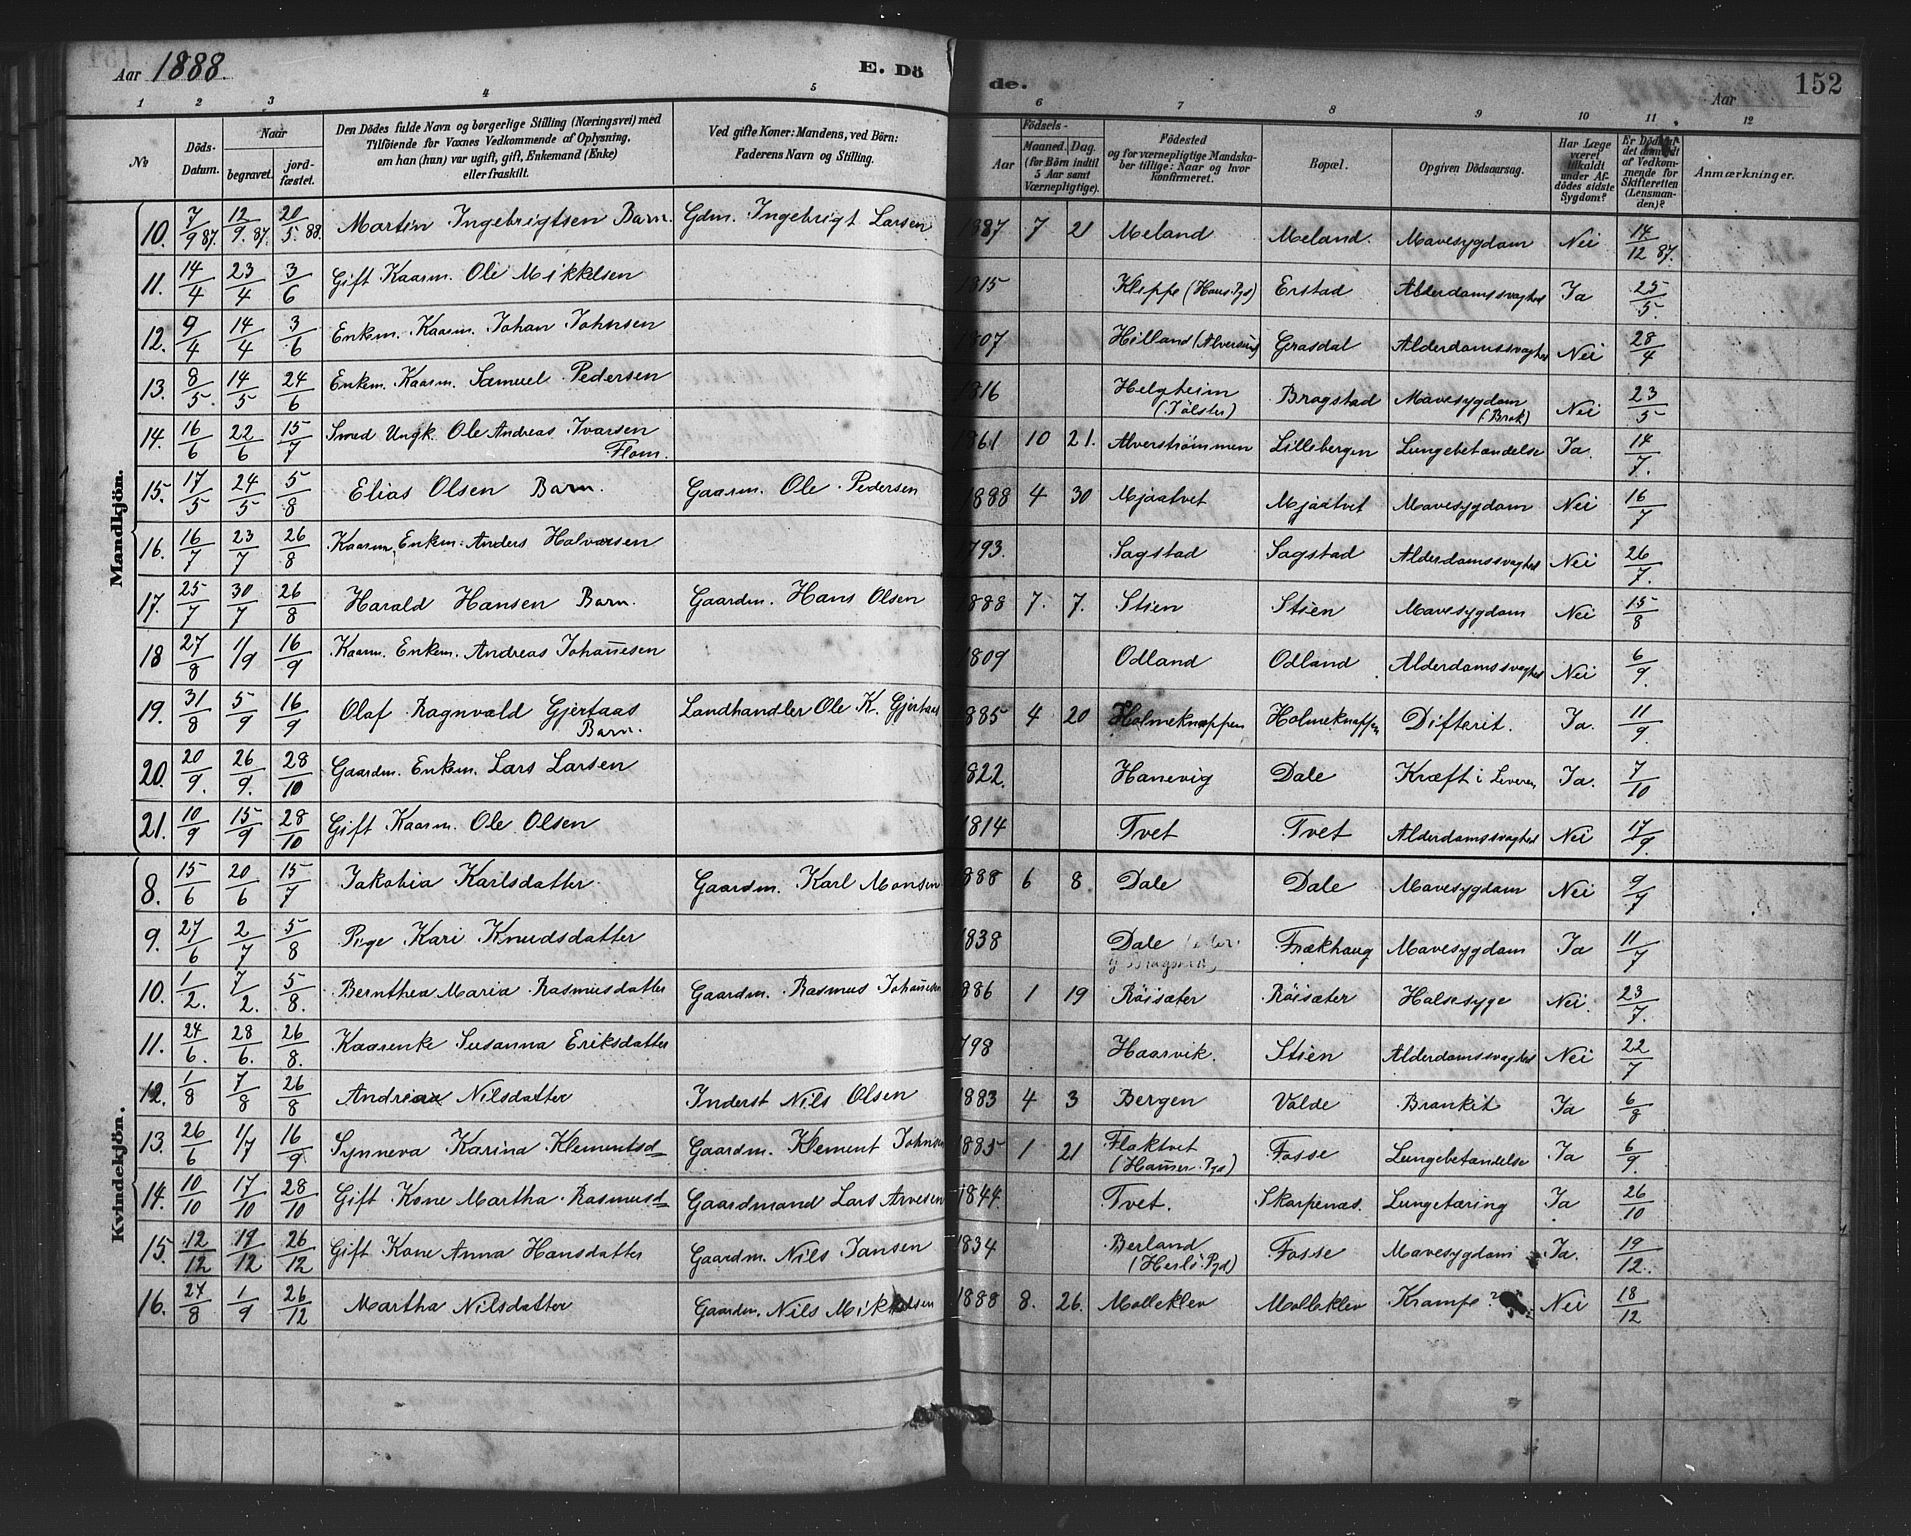 Aar 1888. E. Dö de. Aar 152
1 2 3 4 5 6 7 8 9 10 11 12
No Döds-Datum. Naar begravet. jordfæstet. Den Dödes fulde Navn og borgerlige Stilling (Næringsvei) med Tilföiende for Voxnes Vedkommende af Oplysning, om han (hun) var ugift, gift, Enkemand (Enke) eller fraskilt. Ved gifte Koner: Mandens, ved Börn: Faderens Navn og Stilling. Födsels- Aar Maaned. Dag. (for Börn indtil 5 Aar samt Værnepligtige). Födested og for værnepligtige Mandskaber tillige: Naar og hvor konfirmeret. Bopæl. Opgiven Dödsaarsag. Har Læge været tilkaldt under Afdödes sidste Sygdom? Er Dödsfaldet anmeldt af Vedkommende for Skifteretten (Lensmanden)? Anmærkninger.
Mandkjön.
10. 7/9 87. 12/9. 87. 20/5. 88. Martin Ingebrigtsen Barn Gdm. Ingebrigt Larsen 1887 7 21 Meland Meland. Mavesygdom Nei 14/12 87.
11. 14/4 23/4 3/6 Gift Kaarm. Ole Mikkelsen 1815 Kleppe (Haus Pgd) Erstad Alderdomssvaghed Ja 25/5.
12. 9/4 14/4 3/6 Enkem. Kaarm. Johan Johnsen 1807 Hilland (Alversund) Grasdal Alderdomssvaghed Nei 28/4
13. 8/5. 14/5 24/6 Enkem. Kaarm. Samuel Pedersen 1816 Helgheim (Jölster) Bragstad Mavesygdom (Brok) Nei 23/5
14. 16/6 22/6 15/7 Smed Ungk. Ole Andreas Ivarsen Flom. 1861 10 21. Alverströmmen Lillebergen Lungebetændelse Ja. 14/7.
15. 17/5 24/5 5/8 Elias Olsen Barn. Gaarm. Ole Pedersen 1888 4 30 Mjaatvet Mjaatvet Mavesygdom Nei 16/7
16. 16/7 23/7 26/8 Kaarm, Enkem. Anders Halvorsen 1793. Sagstad Sagstad Alderdomssvaghed Nei 26/7.
17. 25/7 30/7 26/8 Harald Hansen Barn. Gaardm. Hans Olsen 1888 7. 7. Stien Stien Mavesygdom Nei 15/8
18 27/8 1/9 16/9 Kaarm. Enkem. Andreas Johannesen 1809 Odland Odland Alderdomssvaghed Nei 6/9.
19. 31/8 5/9 16/9 Olaf Ragnvald Gjertaas Barn. Landhandler Ole K. Gjertaas 1885 4 20 Holmeknappen Holmeknappen Difterit. Ja. 11/9.
20. 20/9. 26/9. 28/10 Gaardm. Enkem. Lars Larsen 1822. Hanevig Dale Kræft i Leveren Ja. 7/10
21. 10/9 15/9 28/10 Gift Kaarm. Ole Olsen 1814 Tvet Tvet Alderdomssvaghed Nei 17/9.
Kvindekjön.
8. 15/6 20/6 15/7 Jakobia Karlsdatter. Gaardm. Karl Monsen 1888 6 8. Dale Dale Mavesygdom Nei 9/7
9. 27/6 2/7 5/8 Pige Kari Knudsdatter 1838 Dale Frækhaug Mavesygdom Ja 11/7
10. 1/2. 7/2. 5/8. Bernthea Maria Rasmusdatter Gaardm. Rasmus Johannesen 1886 1 19 Röisæter Röisæter Halsesyge Nei. 23/7.
11. 24/6. 28/6. 26/8. Kaarenke Susanna Eriksdatter 1798 Haarvik. Stien Alderdomssvaghed Nei 22/7
12. 1/8 7/8 26/8 Andrea Nilsdatter Inderst Nils Olsen 1883 4 3 Bergen Valde Bronkit Ja 6/8
13. 26/6 1/7 16/9 Synneva Karina Klementsd Gaardm. Klement Johnsen 1885 1 21 Floktvet (Hammer Pgd) Fosse Lungebetændelse Ja 6/9
14. 10/10 17/10 28/10 Gift Kone Martha Rasmusd Gaardmand Lars Arvesen 1844. Tvet. Skarpenæs. Lungetæring Ja 26/10
15. 12/12 19/12 26/12 Gift Kone Anna Hansdatter Gaardm. Nils Jansen 1834 Berland (Herlö Pgd) Fosse Mavesygdom Ja. 19/12.
16. 27/8 1/9 26/12 Martha Nilsdatter Gaardm. Nils Mikkelsen 1888 8. 26. Molleklev Molleklev Krampe? Nei 18/12